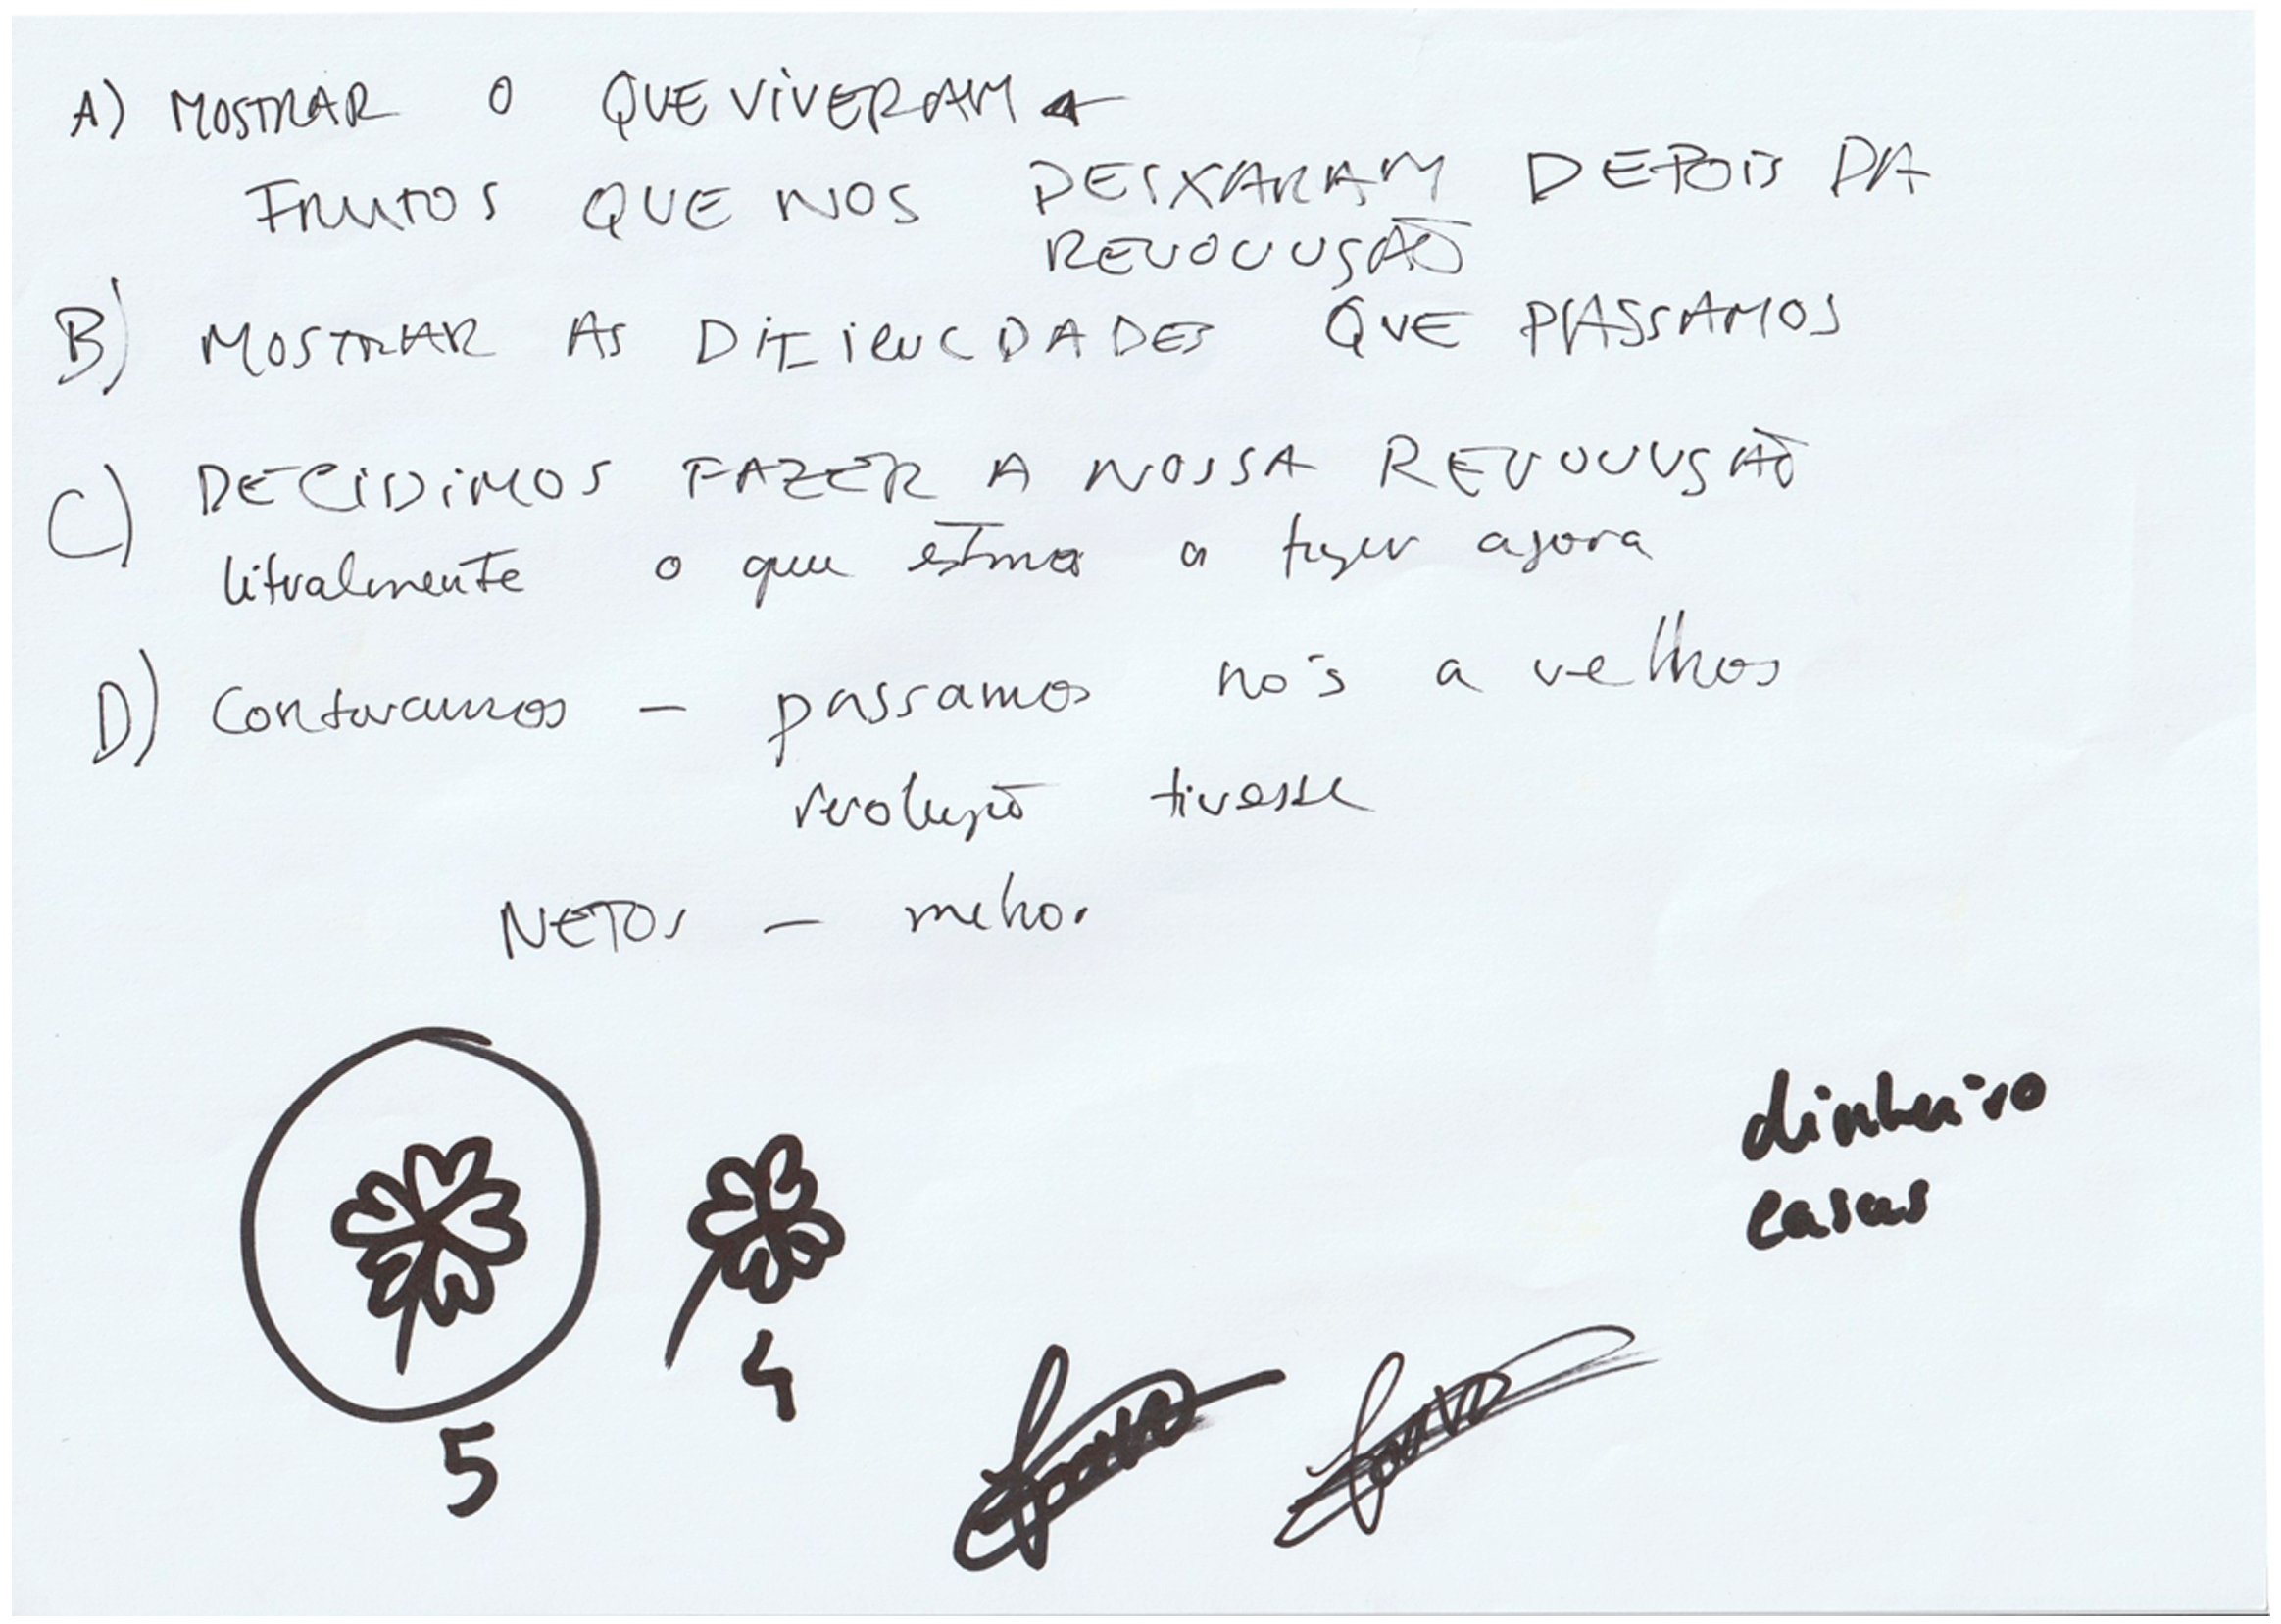 A) MOSTRAR O QUE VIVERAM
FRUTOS QUE NOS DEIXARAM DEPOIS DA
REVOLUÇÃO
B) MOSTRAR AS DIFICULDADES QUE PASSAMOS
C) DECIDIMOS FAZER A NOSSA REVOLUÇÃO
literalmente o que estamos a fazer agora
D) passamos nós a velhos
revolução tivesse
NETOS - melhor
dinheiro
casas
4
5